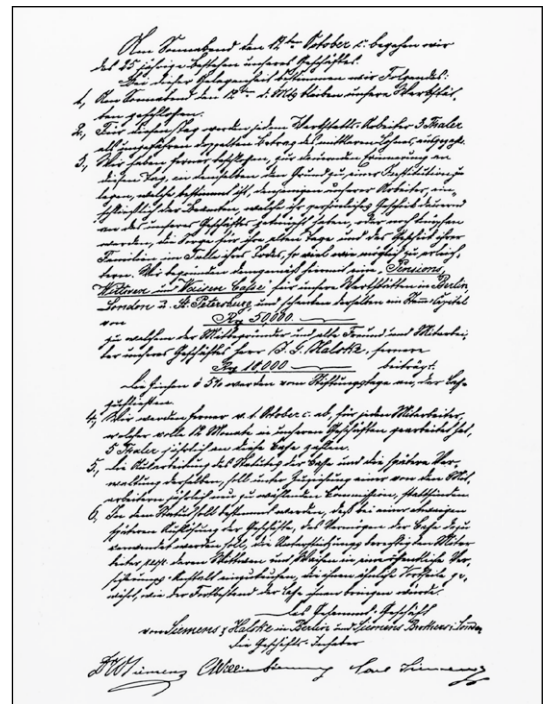 Am Sonnabend den 12ten October c. begehen wir
das 25 jährige Bestehen unseres Geschäftes.
Bei dieser Gelegenheit bestimmen wir Folgendes:
1, Am Sonnabend den 12ten d. Mts bleiben unsere Werkstät,
ten geschlossen.
2, Für diesen Tag werden jedem Werkstatt-Arbeiter 3 Thaler
als ungefähren doppelten Betrag des mittleren Lohnes, ausgezahlt.
3, Wir haben ferner beschlossen, zur dauernden Erinnerung an
diesen Tag, an demselben den Grund zu einer Institution zu
legen, welche bestimmt ist, denjenigen unserer Arbeiter, ein,
schliesslich der Beamten, welche ihr persönliches Geschick dauernd
an das unseres Geschäftes geknüpft haben, oder noch knüpfen
werden, die Sorge für ihre alten Tage und das Geschick ihrer
Familien im Falle ihres Todes, so viel wie möglich zu erleich,
tern. Wir begründen demgemäß hiermit eine Pensions,
Wittwen und Waisen Casse für unsere Werkstätten in Berlin,
London u. St. Petersburg und schenken derselben ein Stamm-Capital
von
50000.
zu welchem der Mitbegründer und alte Freund und Mitarbei,
ter unseres Geschäftes Herr J. G. Halske, ferner
10,000 beiträgt.
Die Zinsen à 5% werden vom Stiftungstage an, der Casse
zufließen.
4, Wir werden ferner v. 1. October c. ab, für jeden Mitarbeiter,
welcher volle 12 Monate in unseren Geschäften gearbeitet hat,
5 Thaler jährlich an diese Casse zahlen.
5, Die Ausarbeitung des Statutes der Casse und die spätere Ver,
waltung derselben, soll unter Zuziehung einer von den Mit,
arbeitern jährlich neu zu wählenden Commission, stattfinden.
6, In dem Statut soll bestimmt werden, daß bei einer etwaigen
späteren Auflösung der Geschäfte, das Vermögen der Casse dazu
verwendet werden soll, die Unterstützungs berechtigten Mitar
beiter, resp. deren Wittwen und Waisen in eine öffentliche Ver,
sicherungs-Anstalt einzukaufen, die ihnen ähnliche Vortheile ge,
währt, wie der Fortbestand der Casse ihnen bringen würde.
Das Gesammt-Geschäft
von Siemens & Halske in Berlin und Siemens Brothers i London
Die Geschäfts-Inhaber
Siemens Siemens Carl Siemens